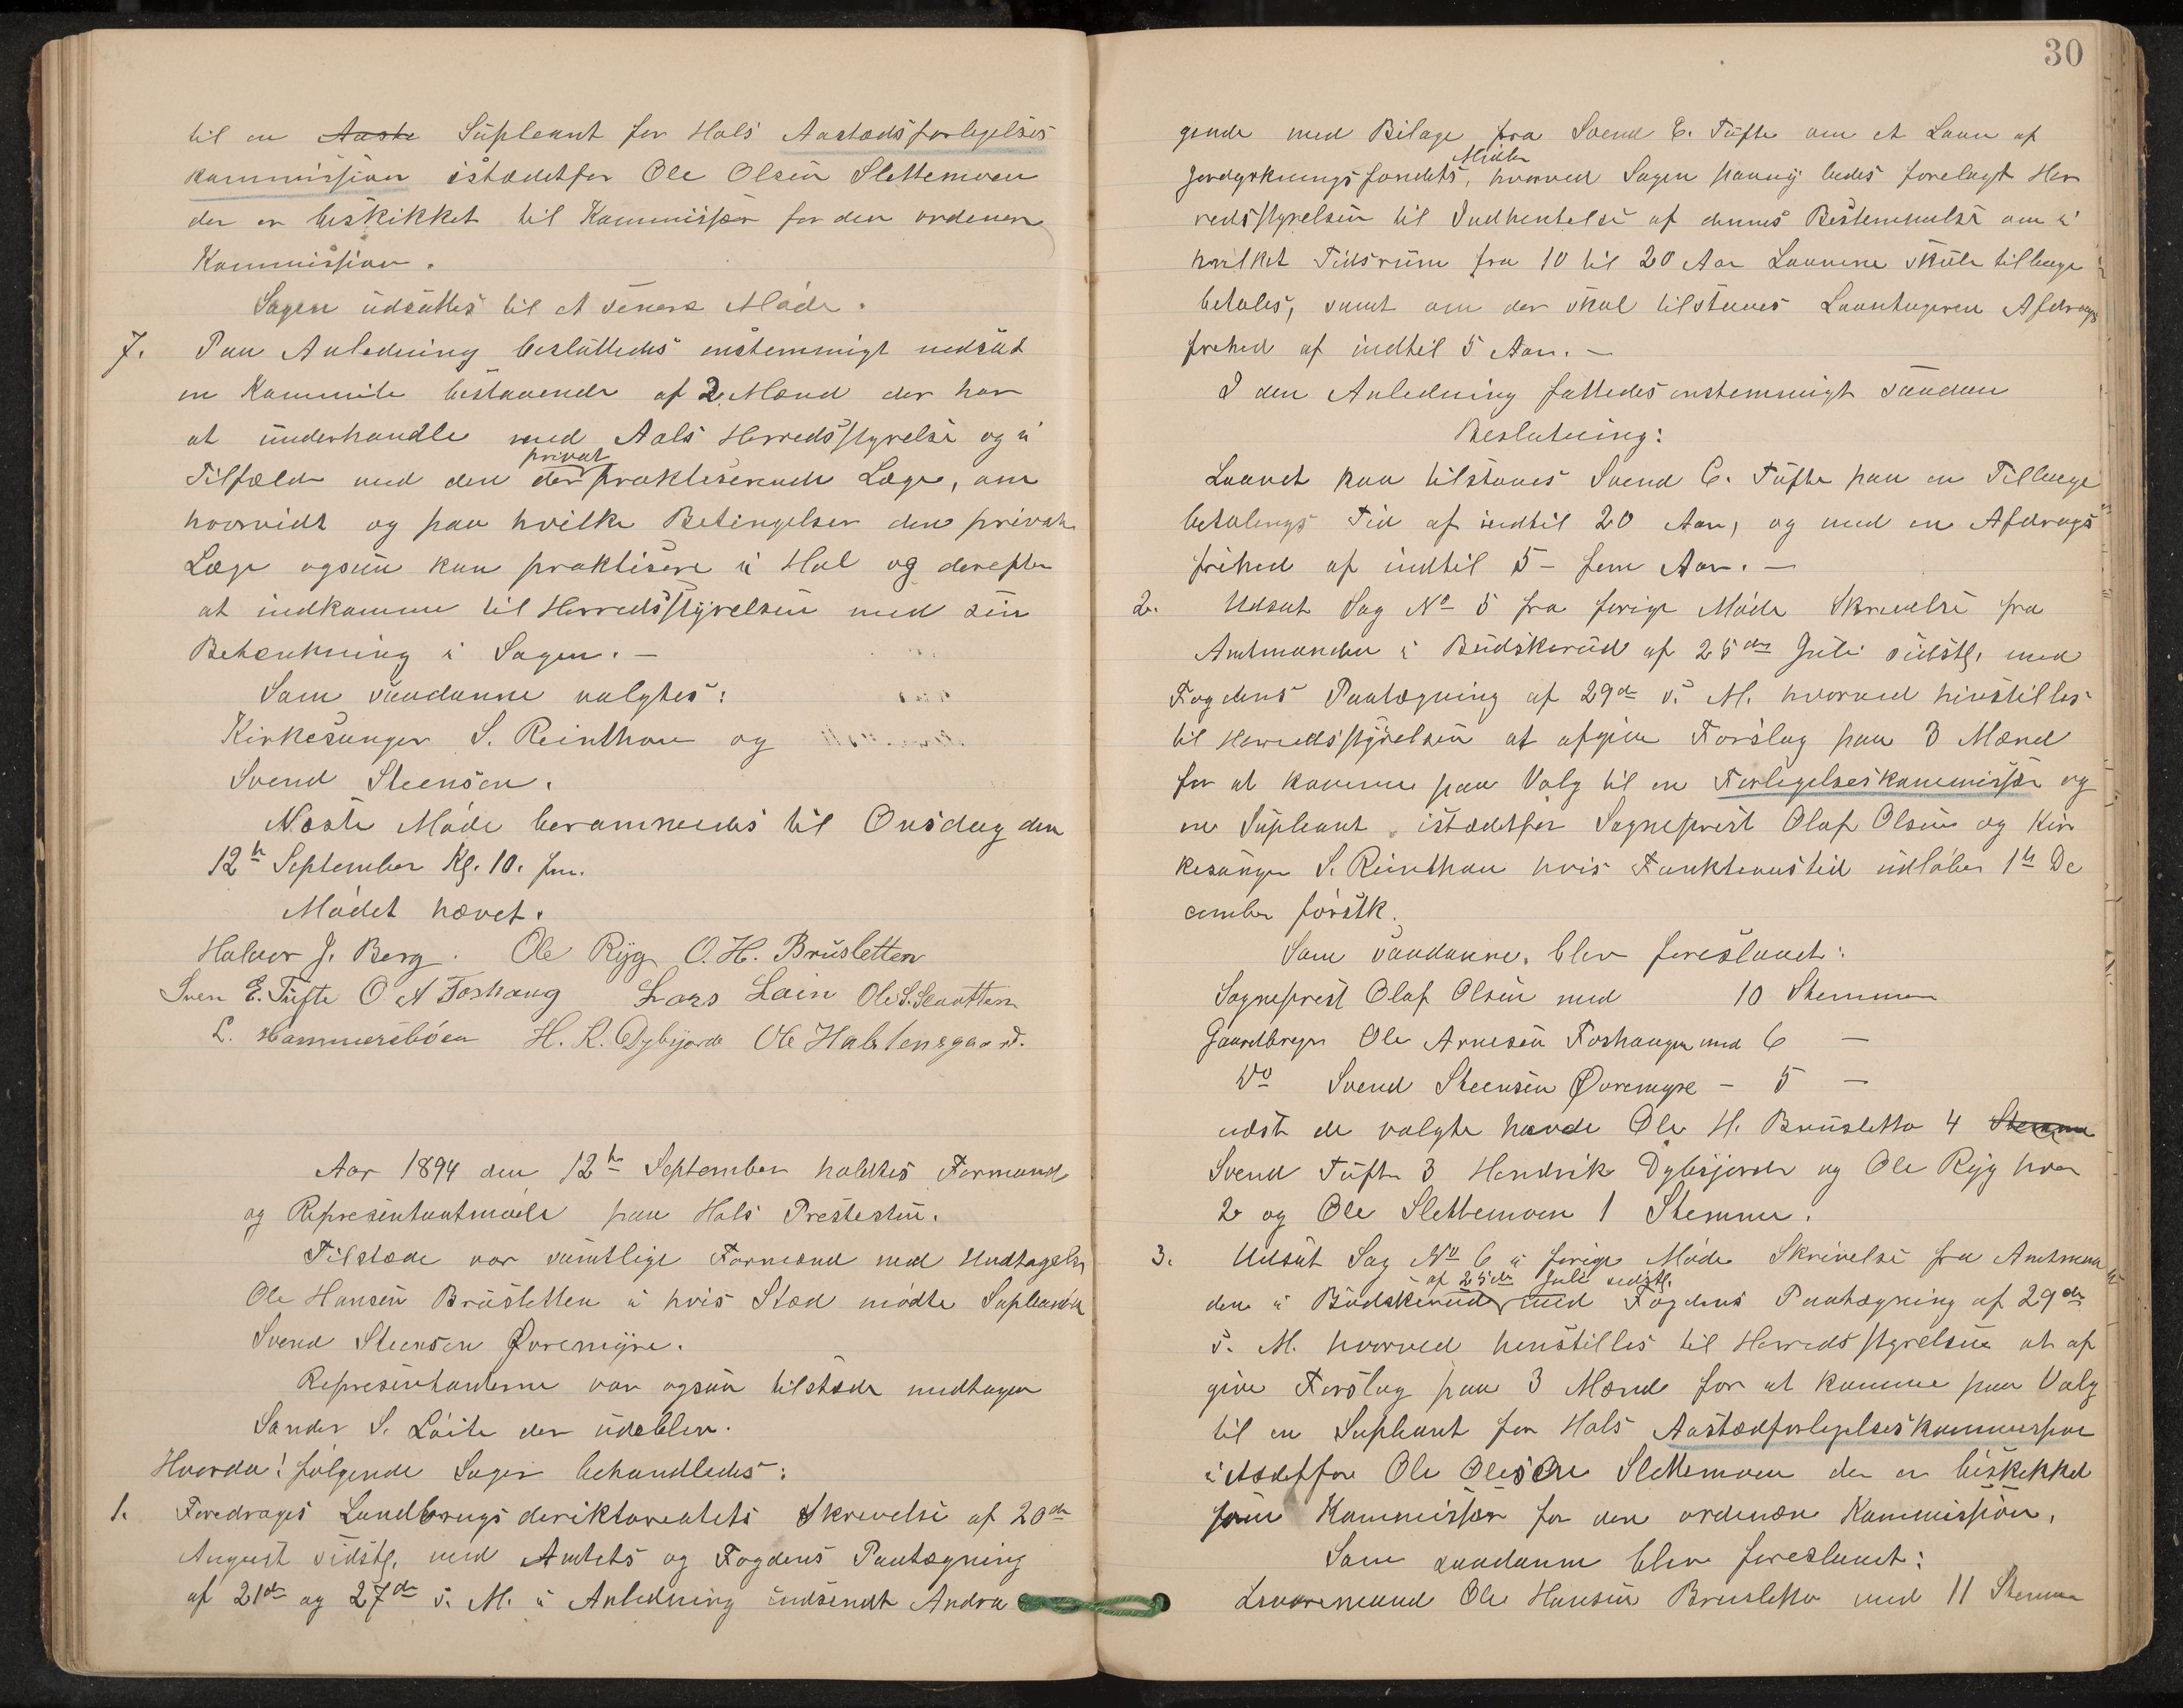 til en Aaste Supleant for Hols Aastedsforligelses
kommission istædetfor Ole Olsen Slettemoen
der er beskikket til Kommissær for den ordenære
Kommission.
Sagen udsattes til et senere Møde.
7. Paa Anledning besluttedes enstemmigt nedsat
en Kommite bestaaende af 2 Mænd der har
at underhandle med Aals Herredsstyrelse og i
privat
Tilfælde med den der praktiserende Læge, om
hvorvidt og paa hvilke Betingelser den private
Læge ogsaa kan praktisere i Hol og derefter
at indkomme til Herredsstyrelsen med sin
Betænkning i Sagen. —
Som saadanne valgtes:
Kirkesanger S. Reinthon og
Svend Steensen.
Næste Møde berammedes til Onsdag den
12te September Kl. 10. fm.
Mødet hævet.
Halvor J. Berg. Ole Ryg O. H. Brusletten
Sven E. Tufte O A Foshaug Lars Lain Ole S. Slaatten
L. Hammersbøen H. R. Dybsjorde Ole Halstensgaard.
Aar 1894 den 12te September holdtes Formand
og Representantmøde paa Hols Prestestu.
Tilstæde var samtlige Formænd med Undtagelse
Ole Hansen Brusletten i hvis Sted mødte Supleanten
Svend Steensen Øvremyre.
Representanterne var ogsaa tilstæde undtagen
Sander S. Løite der udeblev.
Hvorda! følgende Sager behandledes:
1. Foredrages Landbrugsdirektoratets Skrivelse af 20de
August sidstl. med Amtets og Fogdens Paategning
af 21de og 27de s. M. i Anledning indsendt Andra
30
gende med Bilage fra Svend E. Tufte om et Laan af
Midler
Jordyrkningsfondets, hvorved Sagen paany bedes forelagt Her
redsstyrelsen til Indhentelse af dennes Bestemmelse om i
hvilket Tidsrum fra 10 til 20 Aar Laanene skulle tilbage
betales, samt om der skal tilstaaes Laantageren Afdrags
frihed af indtil 5 Aar. —
I den Anledning fattedes enstemmigt saadan
Beslutning:
Laanet kan tilstaaes Svend E. Tufte paa en Tilbage
betalings Tid af indtil 20 Aar, og med en Afdrags
frihed af indtil 5 - fem Aar. —
2. Udsat Sag No 5 fra forige Møde Skrivelse fra
Amtmanden i Budskerud af 25de Juli sidstl. med
Fogdens Paategning af 29de s. M. hvorved hinstilles
til Herredsstyrelsen at afgive Forslag paa 3 Mænd
for at komme paa Valg til en Forligelseskommissær og
en Supleant istædetfor Sogneprest Olaf Olsen og Kir
kesanger S. Reinthon hvis Funktionstid udløber 1te De
cember førstk.
Som saadanne, blev foreslaaet:
Sogneprest Olaf Olsen med 10 Stemmer
Gaardbruger Ole Arnesen Foshaugen med 6 —
Do Svend Steensen Øvremyre — 5 —
næst de valgte havde Ole H. Brusletto 4 Stemme
Svend Tufte 3 Hendrik Dybsjorde og Ole Ryg hver
2 og Ole Slettemoen 1 Stemme.
3. Udsat Sag No 6 i forige Møde Skrivelse fra Amtman
af 25de Juli sidstl.
den i Budskerud med Fogdens Paategning af 29de
s. M. hvorved henstilles til Herredsstyrelsen at af
give Forslag paa 3 Mænd for at komme paa Valg
til en Supleant for Hols Aastædforligelseskommission
istædetfor Ole Olesen Slettemoen der er beskikket
som Kommissær for den ordenære Kommission.
Som saadanne blev foreslaaet:
Ole Hansen Brusletto med 11 Stemme